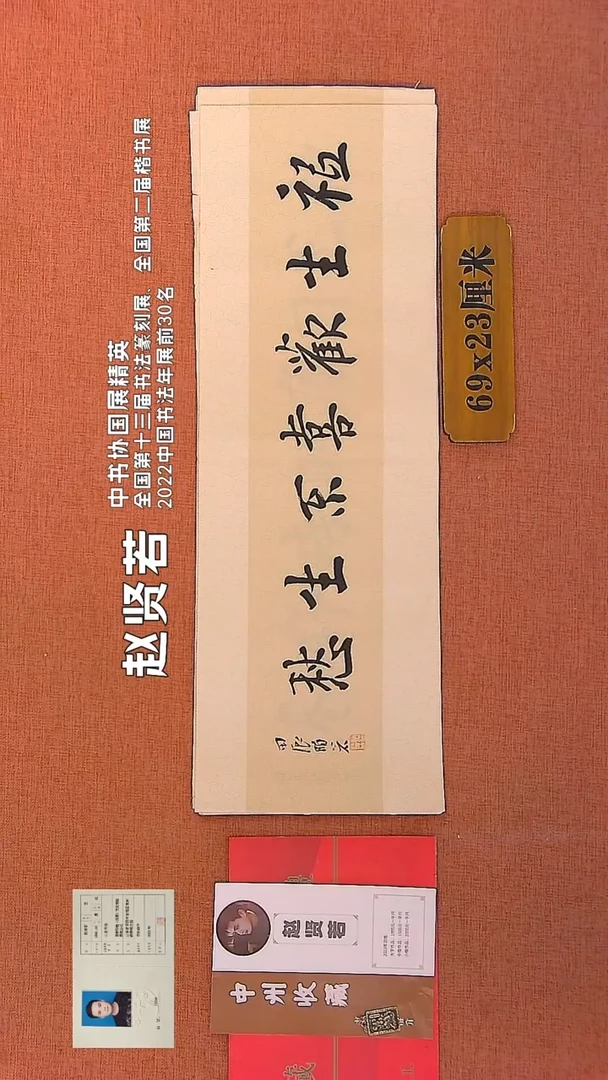 赵贤若
中书协国展精英
全国第十三届书法篆刻展、全国第二届楷书展
2022中国书法年展前30名
祗生歡喜不生愁
甲辰
69x23厘米
赵贤若
中州收藏